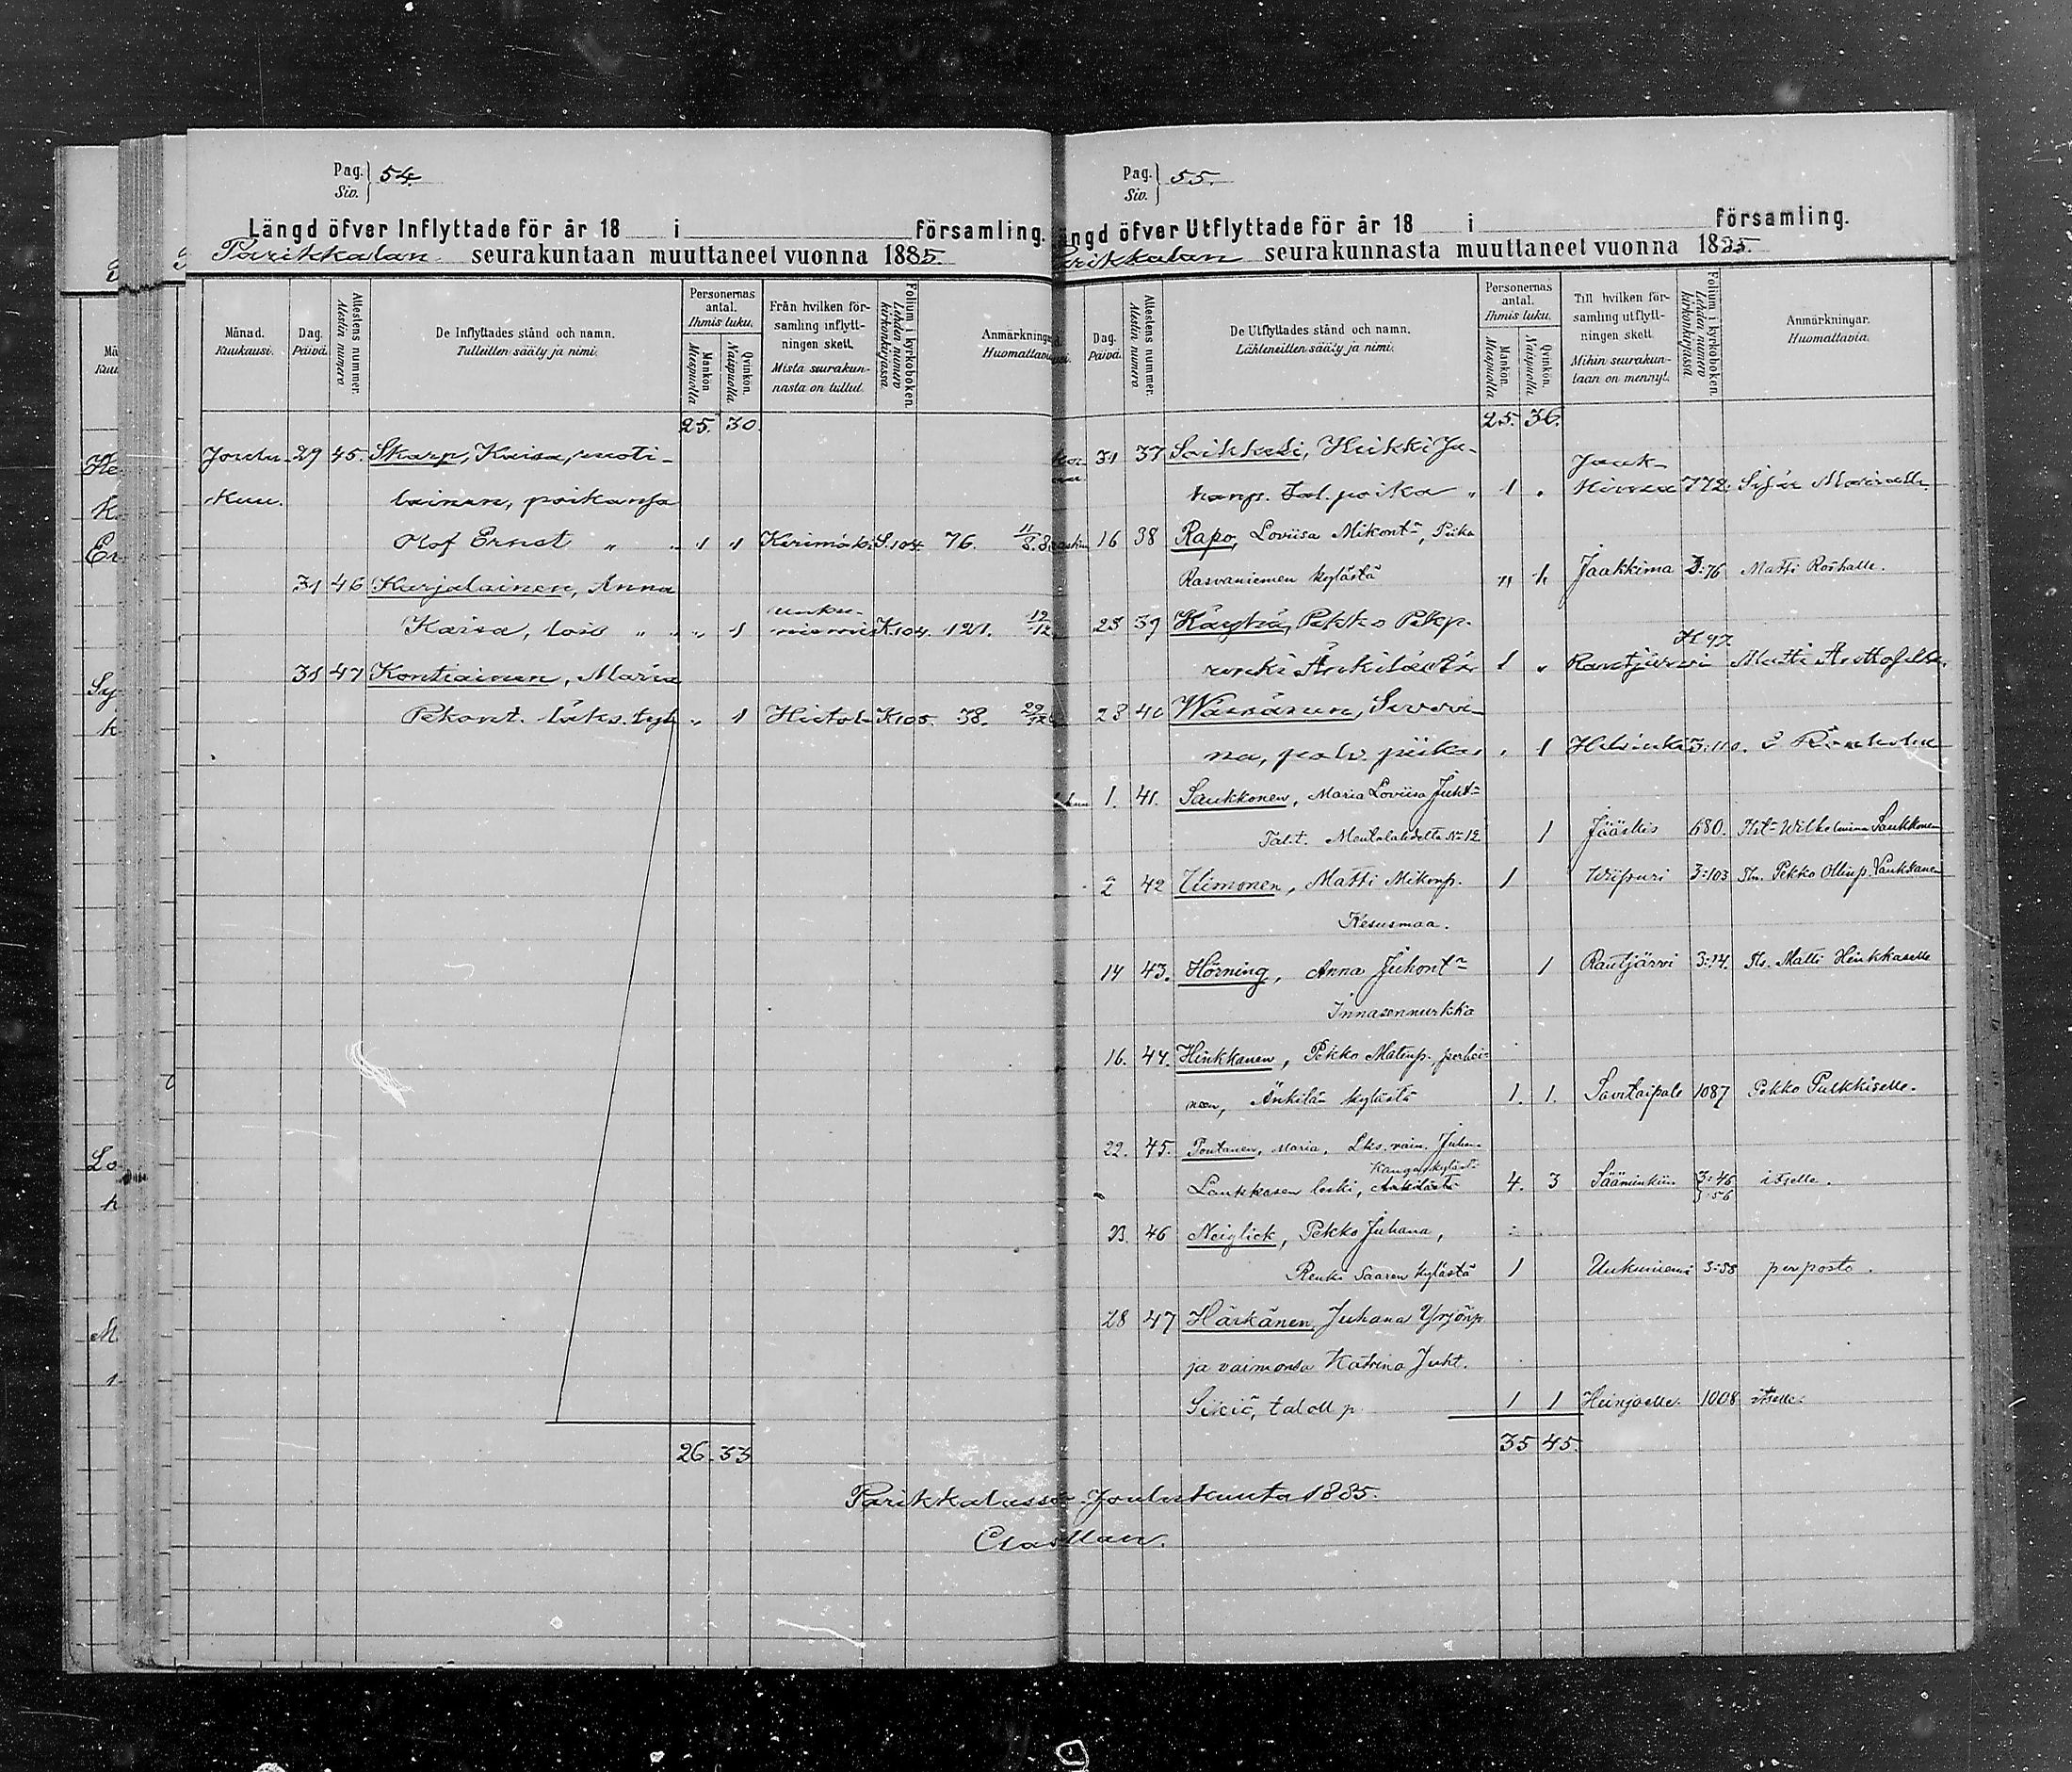 Pag. Siv. 54.
Längd öfver Inflyttade för år 18 i församling.
Parikkalan seurakuntaan muuttaneet vuonna 1885.
Månad. Kuukausi.
Dag. Päivä.
Attestens nummer. Atestin numero
De Inflyttades ständ och namn. Tulleitten sääty ja nimi.
Personernas antal. Ihmis luku.
Mankön. Miespuolia
Qvinkön. Naispuolia
Från hvilken församling inflyttningen skett. Mista seurakunnasta on tullut.
Folium i kyrkoboken. Lehden numero kirkonkirjassa
Anmärkninga Huomattavia
25. 30.
Joulu- 29 45. Skarp, Kaisa, ruoti-
kuu. lainen, poikansa
Olof Ernst „ „ 1 1 Kerimäki S.104 76. 11/8.
31 46 Karjalainen, Anna
Kaisa, lois „ „ 1 Uukuniemi K.104. 121. 19/12
31 47 Kontiainen, Maria
Pekont. läks. tyt. „ 1 Hiitola K105. 38. 29/12
26. 33
Pag. Siv. 55.
ngd öfver Utflyttade för år 18 i församling.
rikkalan seurakunnasta muuttaneet vuonna 1885.
Dag. Päivä.
Attestens nummer. Atestin numero
De Utflyttades ständ och namn. Lähteneitten sääty ja nimi.
Personernas antal. Ihmis luku.
Mankön. Miespuolia
Qvinkön. Naispuolia
Till hvilken församling utflyttningen skett. Mihin seurakuntaan on mennyt.
Folium i kyrkoboken. Lehden numero kirkonkirjassa
Anmärkningar. Huomattavia.
25. 36.
31 37 Heikki Ju-
hanp. Tal. poika „ 1 „ 772.
16 38 Rapo, Loviisa Mikont., Piika
Rasvaniemen kylästä „ 1 Jaakkima 3:76 Matti
23 39 Pekko Pekp.
renki Änkilästä 1 „ Rautjärvi H 97 Matti
23 40 Wäisänen,
na, palv. piika „ 1 Helsinki 3:110.
1. 41. Saukkonen, Maria Loviisa Juht.
Tal.t. No 12 1 Jääskis 680. Wilhelmina Saukkonen
2 42 Uimonen, Matti Mikonp. 1 Wiipuri 3:103 Pekko Ollinp.
Kesusmaa.
14 43. Hörning, Anna Juhont. 1 Rautjärvi 3:14. Matti Hinkkaselle
Innasennurkka
16. 44. Hinkkanen, Pekko Matinp. perhei-
neen, Änkilän kylästä 1. 1. Savitaipale 1087 Pekko Pulkkiselle.
22. 45. Poutanen, Maria, Lks. vaim. Juhan
Kangaskyläst.
Laukkasen leski, Änkilästä 4. 3 Sääminkiin 3:46 3:56 itselle.
23. 46 Neiglick, Pekko Juhana,
Renki Saaren kylästä 1 Uukuniemi 3:58 per posto.
28 47 Härkänen, Juhana Yrjönp
ja vaimonsa Katrina Juht.
Sikiö, taloll p. 1 1 Heinjoelle. 1008 itselle.
35 45.
Parikkalassa Joulukuuta 1885.